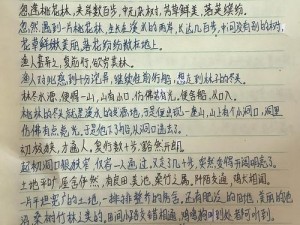 忽逢桃花林，夹岸数百步，中无杂树，芳草鲜美，落英缤纷
忽然遇到一片桃花林，生长在溪水的两岸，长达几百步，中间没有别的树，
花草鲜嫩美丽，落花纷纷散在地上。
渔人甚异之，复前行，欲穷其林。
渔人对此感到十分诧异，继续往前行船，想走到林子的尽头
林尽水源，便得一山，山有小口，仿佛若有光，便舍船，从口入
桃林的尽头就是溪水的发源地，于是便出现一座山，山上有个小洞口，洞里
仿佛有点亮光，于是他下了船，从洞口进去了。
初极狭，才通人，复行数十步，豁然开朗
起初洞口很狭窄，仅容一人通过，又走几十步，突然变得开阔明亮了。
土地平旷，屋舍俨然，有良田美池，桑竹之属，阡陌交通，鸡犬相闻。
一片平坦宽广的土地，一排排整齐的房舍，还有肥沃的田地，美丽的池
沼，桑树竹林之类的，田间小路交错相通，鸡鸣狗叫到处都可听到。